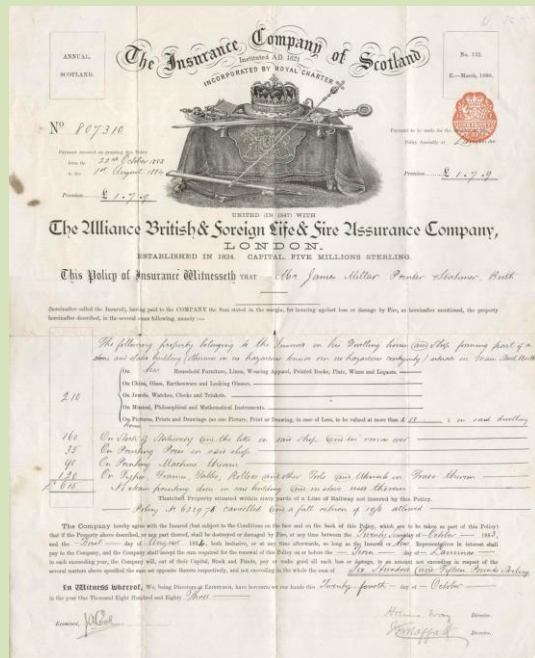 ANNUAL.
SCOTLAND.
The Insurance Company of Scotland
Instituted A.D. 1821
INCORPORATED BY ROYAL CHARTER
No. 132.
E.—March, 1880.
No 807310
Payment received on granting this Policy
from the 22nd October 1883
to the 1st August 1884
Premium £ 1.7.9
Payment to be made for the
Policy Annually at Lammas
Premium £ 1.7.9
UNITED (IN 1847) WITH
The Alliance British & Foreign Life & Fire Assurance Company,
LONDON.
ESTABLISHED IN 1824. CAPITAL, FIVE MILLIONS STERLING.
This Policy of Insurance Witnesseth THAT Mr James Millar Printer Stationer
(hereinafter called the Insured), having paid to the COMPANY the Sum stated in the margin, for insuring against loss or damage by Fire, as hereinafter mentioned, the property
hereinafter described, in the several sums following, namely:—
The following property belonging to the Insured in his Dwelling house and Shop forming part of a
stone and slated building
On his Household Furniture, Linen, Wearing Apparel, Printed Books, Plate, Wines and Liquors.
On China, Glass, Earthenware and Looking Glasses.
210 On Jewels, Watches, Clocks and Trinkets.
On Musical, Philosophical and Mathematical Instruments.
On Pictures, Prints and Drawings (no one Picture, Print or Drawing, in case of Loss, to be valued more than £ 10) in said dwelling
house
160 On Stock of Stationery and the like in said shop and in rooms over
35 On Printing Press in said shop
90 On Printing Machine therein
120 On Types, Frames, Rollers and other Tools and Utensils in Trade therein
£ 615 No steam
Thatched Property situated within sixty yards of a Line of Railway not insured by this Policy.
Policy No cancelled and a full return of allowed
The Company hereby agree with the Insured (but subject to the Conditions on the face and on the back of this Policy, which are to be taken as part of this Policy)
that if the Property above described, or any part thereof, shall be destroyed or damaged by Fire, at any time between the day of October 1883,
and the First day of August 1884, both inclusive, or at any time afterwards, so long as the Insured or Representative in interest shall
pay to the Company, and the Company shall accept the sum required for the renewal of this Policy on or before the Term day of Lammas
in each succeeding year, the Company will, out of their Capital, Stock and Funds, pay or make good all such loss or damage, to an amount not exceeding in respect of the
several matters above specified the sum set opposite thereto respectively, and not exceeding in the whole the sum of Six Hundred and Fifteen Pounds Sterling
In Witness whereof, We, being Directors at EDINBURGH, have hereunto set our hands this Twenty fourth day of October
in the year One Thousand Eight Hundred and Eighty Three
Examined,
Director.
Director.